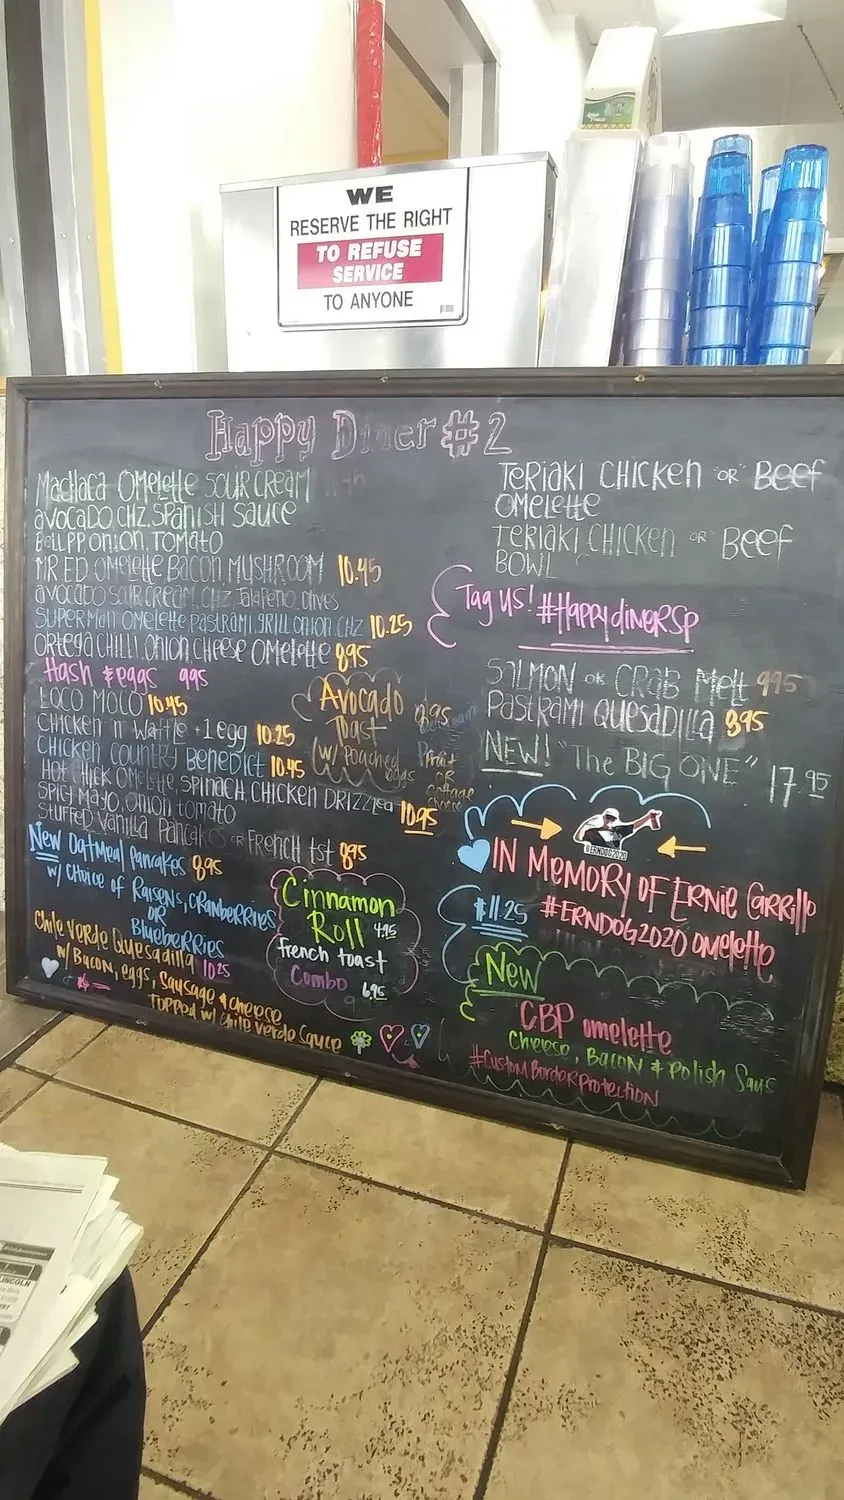 WE
RESERVE THE RIGHT
TO REFUSE
SERVICE
TO ANYONE
Happy Diner #2
Machaca Omelette Sour Cream
avocado chz. Spanish Sauce
Bell PP. Onion. Tomato
MR ED. Omelette Bacon, Mushroom 10.45
avocado sour cream, chz, Jalapeno. olives
Super Man Omelette Pastrami, grill onion. chz 10.25
Ortega Chilli. Onion, Cheese Omelette 895
Hash & eggs 995
Loco Moco 10.45
Chicken 'n' Waffle +1 egg 10.25
Chicken Country Benedict 10.45
Hot Chick Omelette, Spinach, Chicken Drizzled
Spicy Mayo, Onion tomato 10.95
Stuffed Vanilla Pancakes or French tst 895
New Oatmeal Pancakes 895
w/ Choice of Raisens, Cranberries
OR
Blueberries
Chile Verde Quesadilla 10.25
w/ Bacon, eggs, Sausage & cheese
Topped w/ Chile Verde Sauce
Avocado 895
Toast
(w/ Poached
eggs
Fruit
OR
Cottage
Cheese
Cinnamon
Roll 4.95
French toast
Combo 6.95
Teriaki Chicken "or" Beef
Omelette
Teriaki Chicken "or" Beef
Bowl
Tag us! #HappydinerSP
Salmon or Crab Melt 995
Pastrami Quesadilla 895
NEW! "The BIG ONE" 17.95
#ERNDOG2020
IN MEMORY OF ERNIE Carrillo
$11.25 #ERNDOG2020 omelette
New
CBP omelette
Cheese, Bacon & Polish Saus
#CustomBorderProtection
LINCOLN